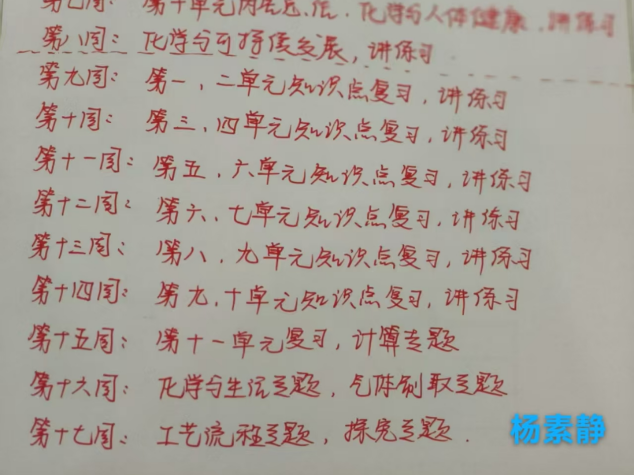 第七周：第十单元内容总结．化学与人体健康．讲练习
第八周：化学与可持续发展，讲练习
第九周：第一、二单元知识点复习，讲练习
第十周：第三、四单元知识点复习，讲练习
第十一周：第五、六单元知识点复习，讲练习
第十二周：第六、七单元知识点复习，讲练习
第十三周：第八、九单元知识点复习，讲练习
第十四周：第九、十单元知识点复习，讲练习
第十五周：第十一单元复习，计算专题
第十六周：化学与生活专题，气体制取专题
第十七周：工艺流程专题，探究专题．
杨素静